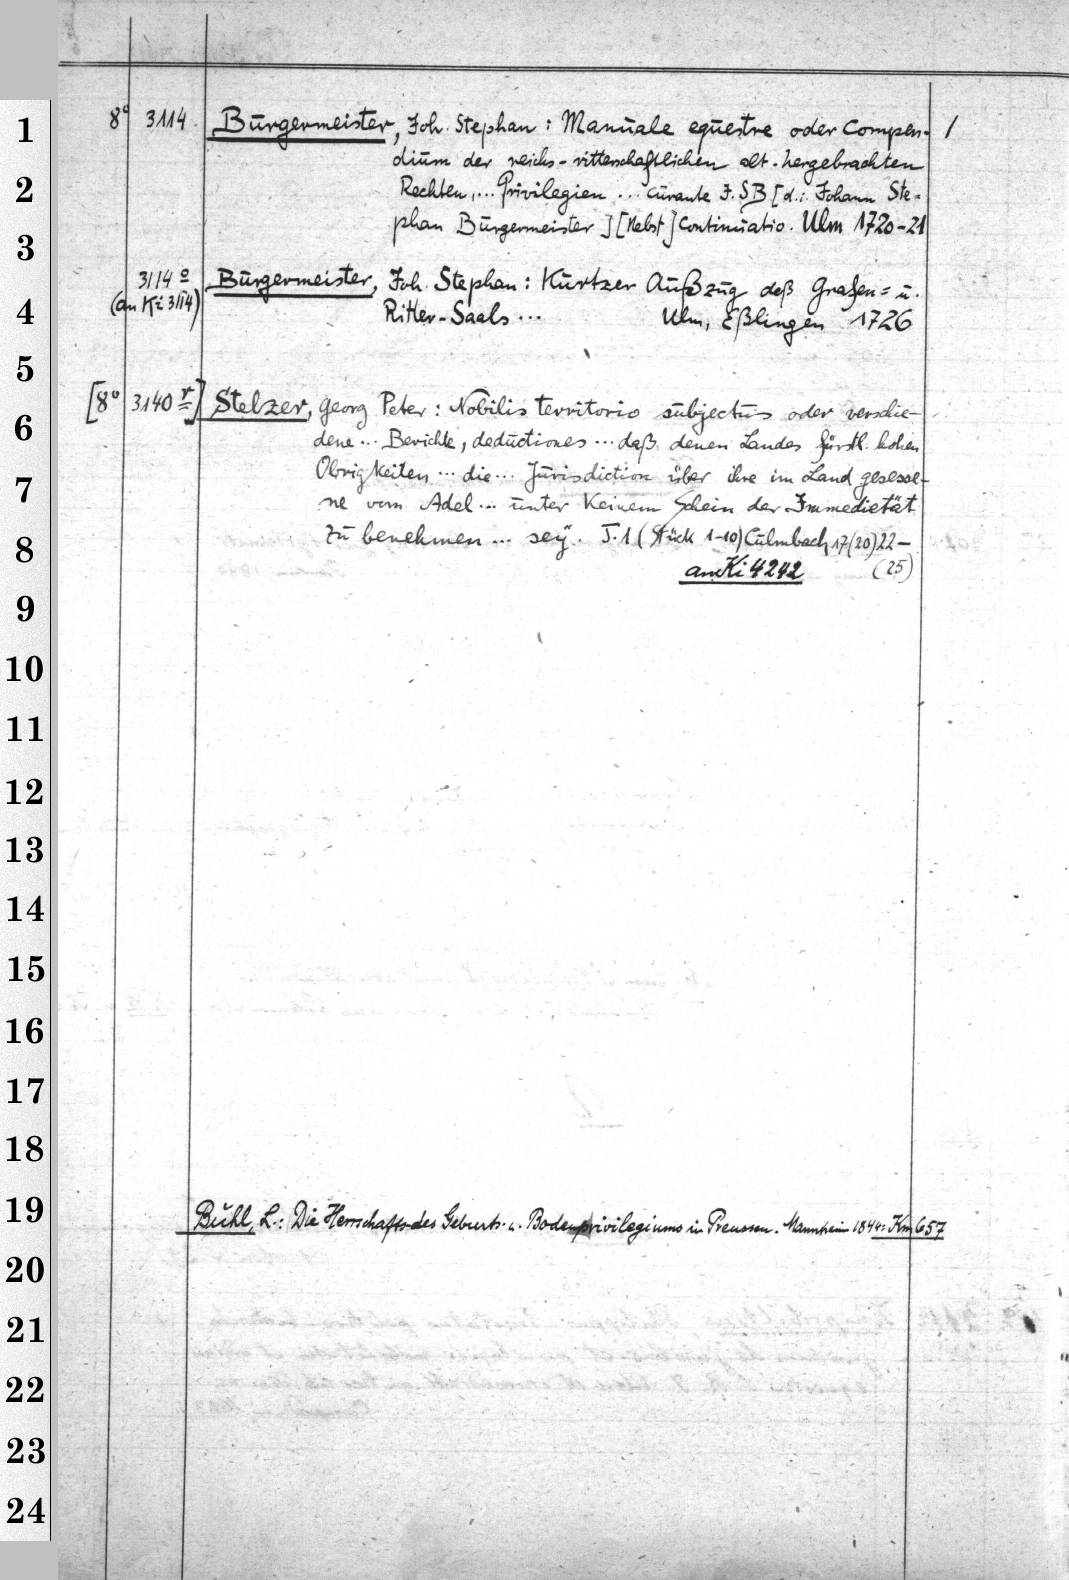 8° 3114. Burgermeister, Joh. Stephan: Manuale equestre oder Compen- 1
dium der reichs-ritterschaftlichen alt-hergebrachten
Rechten,... Privilegien ... curante J. SB [d.i. Johann Ste-
phan Burgermeister] [Nebst] Continuatio. Ulm 1720-21
3114 o Burgermeister, Joh. Stephan: Kurtzer Außzug deß Grafen= u.
(an Ki 3114) Ritter-Saals ... Ulm, Eßlingen 1726
[8° 3140 r] Stelzer, Georg Peter: Nobilis territorio subjectus oder verschie-
dene ... Berichte, deductiones ... daß denen Landes fürstl. hohen
Obrigkeiten ... die ... Jurisdiction über ihre im Land gesesse-
ne vom Adel ... unter Keinem Schein der Immedietät
zu benehmen ... seÿ. T.1 (Stück 1-10) Culmbach 17(20)22-
an Ki 4242 (25)
Buhl, L.: Die Herrschaft des Geburts- u. Bodenprivilegiums in Preussen. Mannheim 1844: Km 657
1
2
3
4
5
6
7
8
9
10
11
12
13
14
15
16
17
18
19
20
21
22
23
24